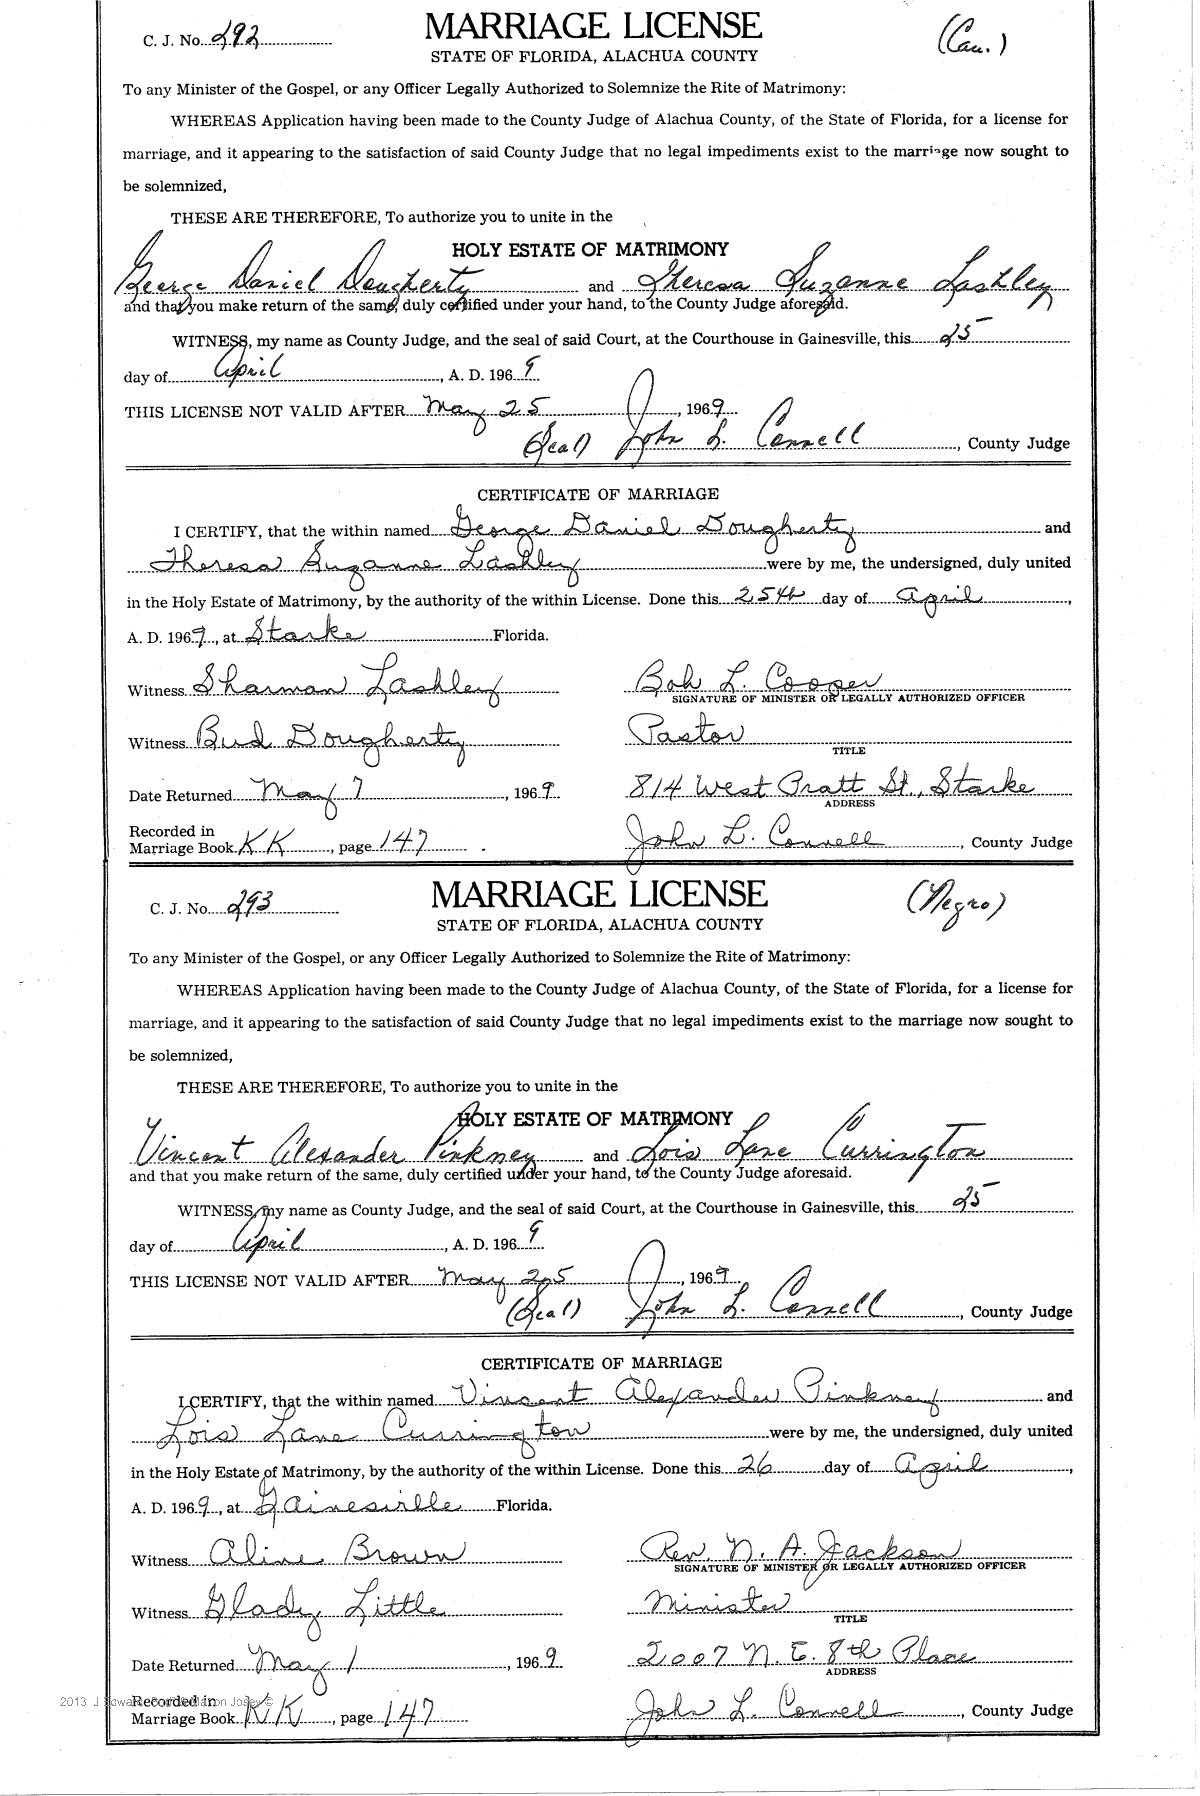 C. J. No. 292
MARRIAGE LICENSE
(Cau.)
STATE OF FLORIDA, ALACHUA COUNTY
To any Minister of the Gospel, or any Officer Legally Authorized to Solemnize the Rite of Matrimony:
WHEREAS Application having been made to the County Judge of Alachua County, of the State of Florida, for a license for
marriage, and it appearing to the satisfaction of said County Judge that no legal impediments exist to the marriage now sought to
be solemnized,
THESE ARE THEREFORE, To authorize you to unite in the
HOLY ESTATE OF MATRIMONY
George Daniel Dougherty and Theresa Suzanne Lashley
and that you make return of the same, duly certified under your hand, to the County Judge aforesaid.
WITNESS, my name as County Judge, and the seal of said Court, at the Courthouse in Gainesville, this 25
day of April, A. D. 196 9
THIS LICENSE NOT VALID AFTER May 25, 1969
(Seal) John L. Connell, County Judge
CERTIFICATE OF MARRIAGE
I CERTIFY, that the within named George Daniel Dougherty and
Theresa Suzanne Lashley were by me, the undersigned, duly united
in the Holy Estate of Matrimony, by the authority of the within License. Done this 25th day of April,
A. D. 1969, at Starke Florida.
Witness Sharman Lashley
Bob L. Cooper
SIGNATURE OF MINISTER OR LEGALLY AUTHORIZED OFFICER
Witness Bud Dougherty
Pastor
TITLE
Date Returned May 7, 1969
814 West Pratt St., Starke
ADDRESS
Recorded in
Marriage Book KK, page 147
John L. Connell, County Judge
C. J. No. 293
MARRIAGE LICENSE
(Negro)
STATE OF FLORIDA, ALACHUA COUNTY
To any Minister of the Gospel, or any Officer Legally Authorized to Solemnize the Rite of Matrimony:
WHEREAS Application having been made to the County Judge of Alachua County, of the State of Florida, for a license for
marriage, and it appearing to the satisfaction of said County Judge that no legal impediments exist to the marriage now sought to
be solemnized,
THESE ARE THEREFORE, To authorize you to unite in the
HOLY ESTATE OF MATRIMONY
Vincent Alexander Pinkney and Lois Lane Currington
and that you make return of the same, duly certified under your hand, to the County Judge aforesaid.
WITNESS, my name as County Judge, and the seal of said Court, at the Courthouse in Gainesville, this 25
day of April, A. D. 196 9
THIS LICENSE NOT VALID AFTER May 25, 1969
(Seal) John L. Connell, County Judge
CERTIFICATE OF MARRIAGE
I CERTIFY, that the within named Vincent Alexander Pinkney and
Lois Lane Currington were by me, the undersigned, duly united
in the Holy Estate of Matrimony, by the authority of the within License. Done this 26 day of April,
A. D. 1969, at Gainesville Florida.
Witness Aline Brown
Rev. N. A. Jackson
SIGNATURE OF MINISTER OR LEGALLY AUTHORIZED OFFICER
Witness Glady Little
Minister
TITLE
Date Returned May 1, 1969
2007 N. E. 8th Place
ADDRESS
Recorded in
Marriage Book KK, page 147
John L. Connell, County Judge
2013 J